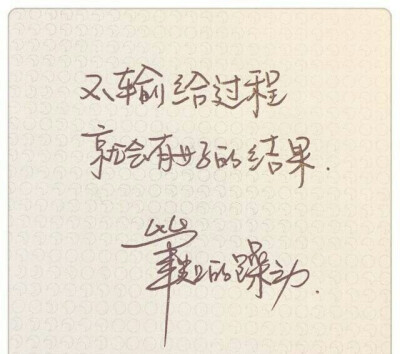 不输给过程
就会有好的结果.
笔尖上的躁动.